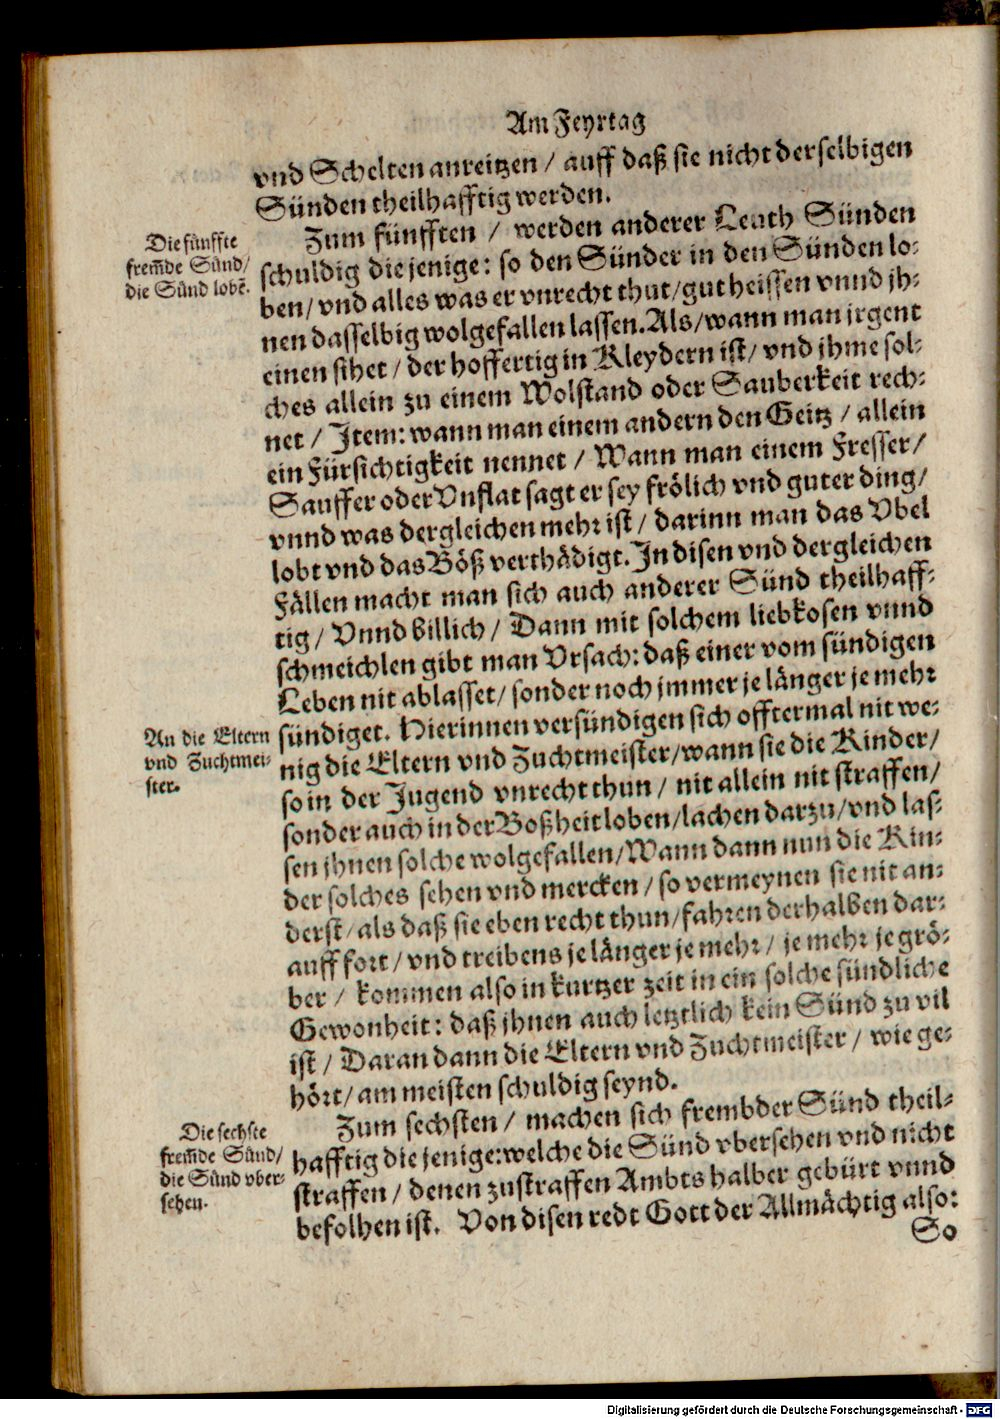 Am Feyrtag
vnd Schelten anreitzen / auff daß sie nicht derselbigen
Sünden theilhafftig werden.
Die fünffte
frem̃de Sünd /
die Sünd lobẽ.
Zum fünfften / werden anderer Leuth Sünden
schuldig die jenige: so den Sünder in den Sünden lo-
ben / vnd alles was er vnrecht thut / gut heissen vnnd jh-
nen dasselbig wolgefallen lassen. Als / wann man jrgent
einen sihet / der hoffertig in Kleydern ist / vnd jhme sol-
ches allein zu einem Wolstand oder Sauberkeit rech-
net / Item: wann man einem andern den Geitz / allein
ein Fürsichtigkeit nennet / Wann man einem Fresser /
Sauffer oder Vnflat sagt er sey frölich vnd guter ding /
vnnd was dergleichen mehr ist / darinn man das Vbel
lobt vnd das Böß verthädigt. In disen vnd dergleichen
Fällen macht man sich auch anderer Sünd theilhaff-
tig / Vnnd billich / Dann mit solchem liebkosen vnnd
schmeichlen gibt man Vrsach: daß einer vom sündigen
Leben nit ablasset / sonder noch jmmer je länger je mehr
sündiget. Hierinnen versündigen sich offtermal nit we-
An die Eltern
vnd Zuchtmei-
ster.
nig die Eltern vnd Zuchtmeister / wann sie die Kinder /
so in der Jugend vnrecht thun / nit allein nit straffen /
sonder auch in der Boßheit loben / lachen darzu / vnd las-
sen jhnen solche wolgefallen / Wann dann nun die Kin-
der solches sehen vnd mercken / so vermeynen sie nit an-
derst / als daß sie eben recht thun / fahren derhalben dar-
auff fort / vnd treibens je länger je mehr / je mehr je grö-
ber / kommen also in kurtzer zeit in ein solche sündliche
Gewonheit: daß jhnen auch letztlich kein Sünd zu vil
ist / Daran dann die Eltern vnd Zuchtmeister / wie ge-
hört / am meisten schuldig seynd.
Die sechste
frem̃de Sünd /
die Sünd vber-
sehen.
Zum sechsten / machen sich frembder Sünd theil-
hafftig die jenige: welche die Sünd vbersehen vnd nicht
straffen / denen zustraffen Ambts halber gebürt vnnd
befolhen ist. Von disen redt Gott der Allmächtig also:
So
Digitalisierung gefördert durch die Deutsche Forschungsgemeinschaft - DFG